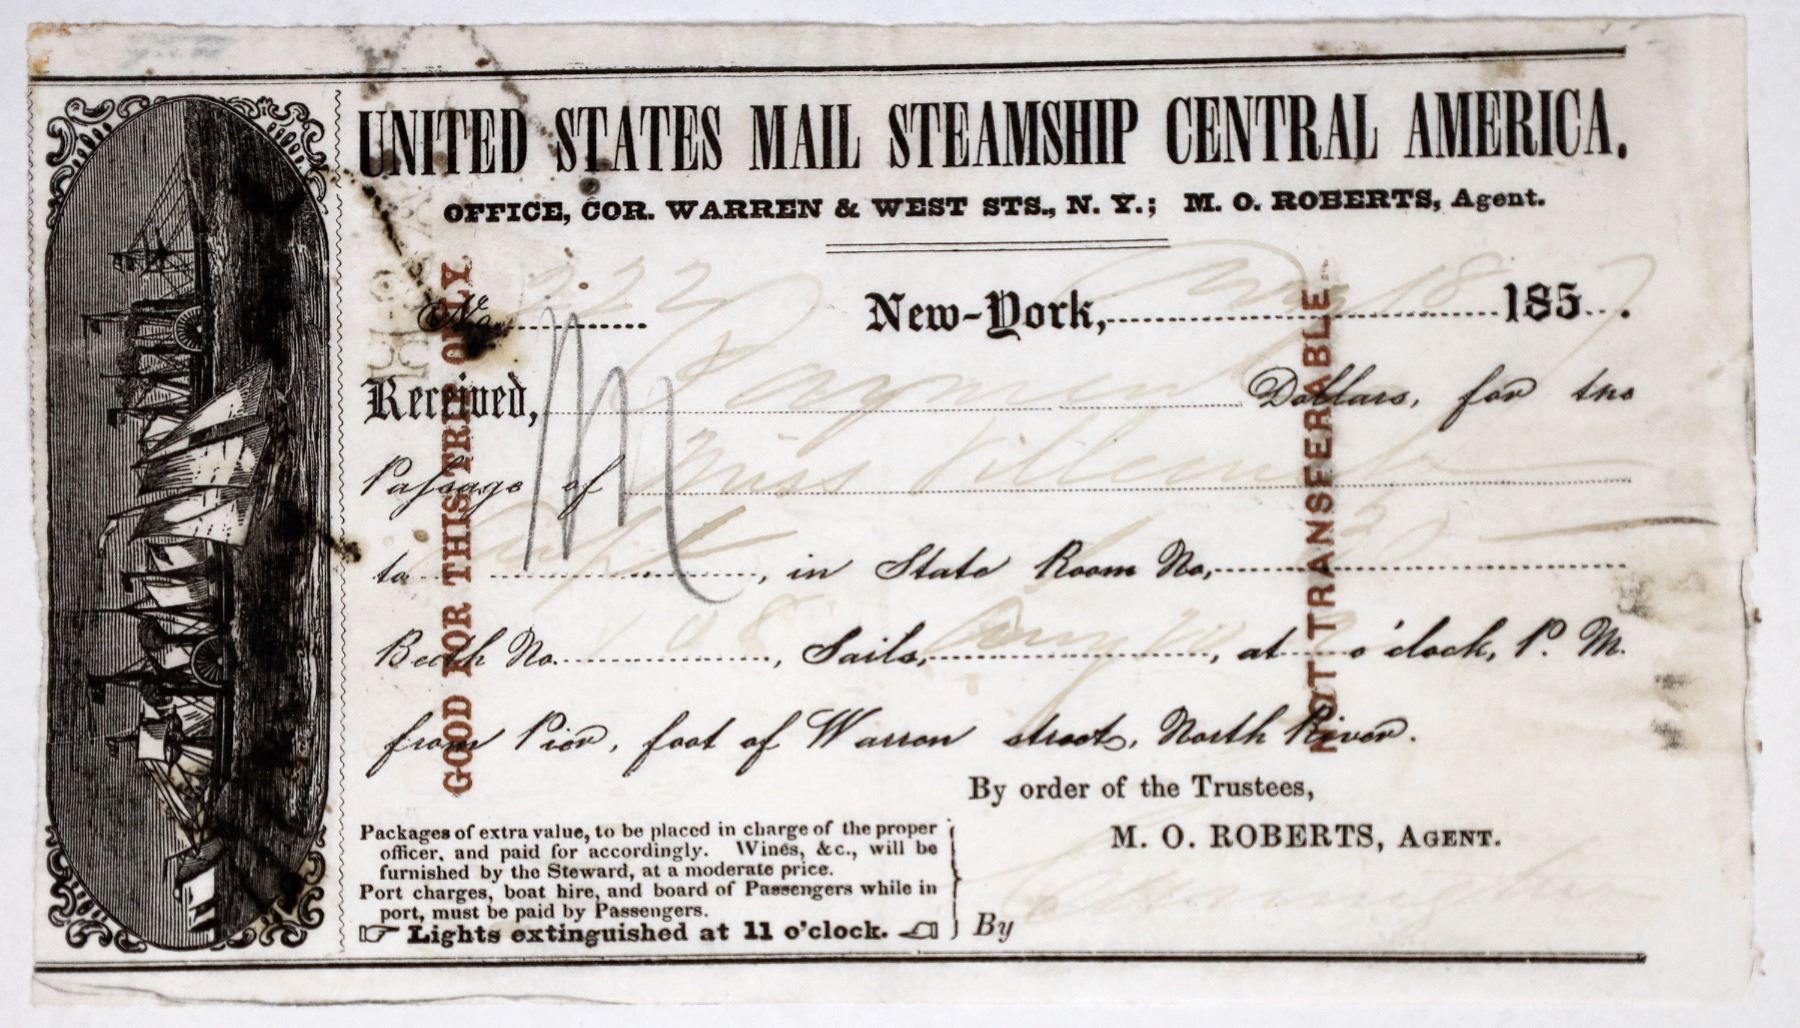 UNITED STATES MAIL STEAMSHIP CENTRAL AMERICA.
OFFICE, COR. WARREN & WEST STS., N. Y.; M. O. ROBERTS, Agent.
No. 222 New-York, Aug 18 1857.
Received, Payment Dollars, for the
Passage of Miss
to, in State Room No,
Berth No. 108, Sails, Aug 20, at o'clock, P. M.
from Pier, foot of Warren street, North River.
By order of the Trustees,
M. O. ROBERTS, AGENT.
By
Packages of extra value, to be placed in charge of the proper
officer, and paid for accordingly. Wines, &c., will be
furnished by the Steward, at a moderate price.
Port charges, boat hire, and board of Passengers while in
port, must be paid by Passengers.
Lights extinguished at 11 o'clock.
GOOD FOR THIS TRIP ONLY
NOT TRANSFERABLE
M